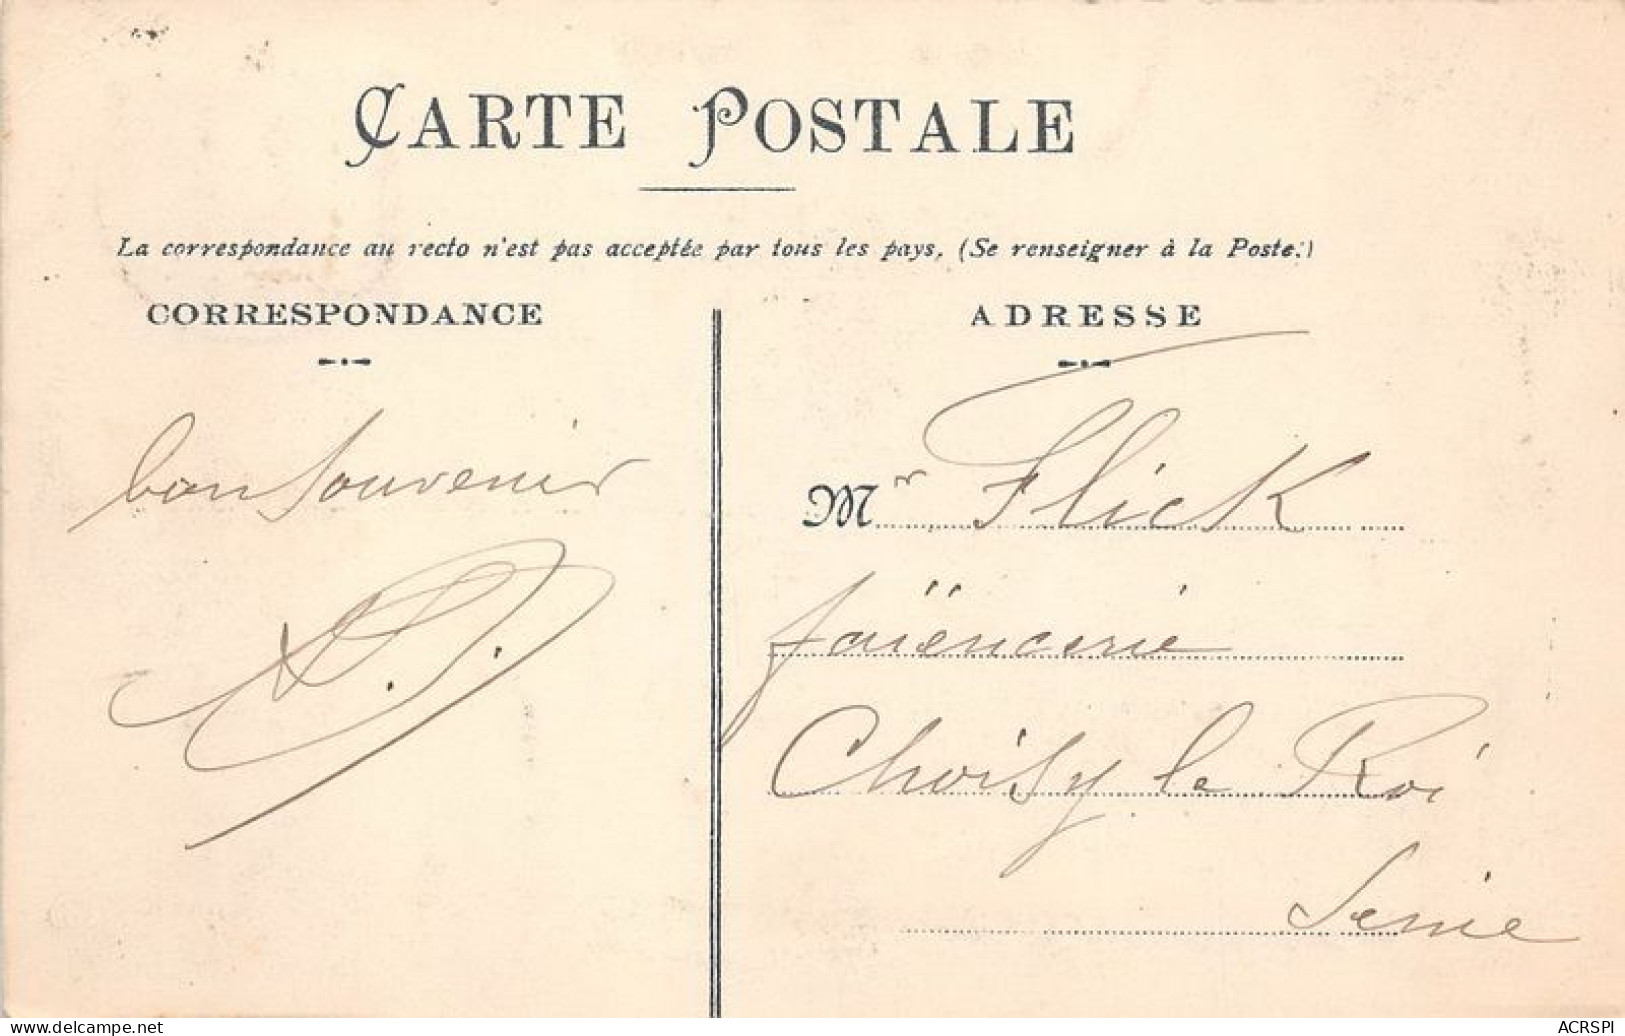 CARTE POSTALE
La correspondance au recto n'est pas acceptée par tous les pays. (Se renseigner à la Poste.)
CORRESPONDANCE
bon souvenir
ADRESSE
Mr Flick
faïencerie
Choisy le Roi
Seine
www.delcampe.net
ACRSPI